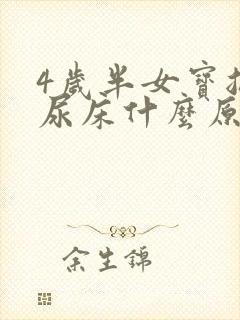 4歲半女寶
尿床什麼原
余生錦